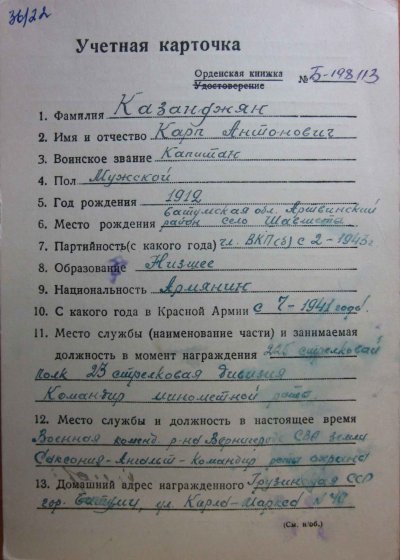 36/22
Учетная карточка
Орденская книжка
Удостоверение № Б-198113
1. Фамилия Казанджян
2. Имя и отчество Карп Антонович
3. Воинское звание Капитан
4. Пол Мужской
5. Год рождения 1912
Батумская обл. Артвинский
6. Место рождения район село
7. Партийность (с какого года) чл. ВКП(б) с 2-1943г
8. Образование Низшее
9. Национальность Армянин
10. С какого года в Красной Армии с 7-1941 года.
11. Место службы (наименование части) и занимаемая
должность в момент награждения 225 стрелковый
полк 23 стрелковая дивизия
Командир минометной роты
12. Место службы и должность в настоящее время
Военная коменд. р-на Вернигероде СВА земли
Саксония-Ангальт-Командир роты охраны
13. Домашний адрес награжденного Грузинская ССР
гор. Батуми, ул. Карла-Маркса №
(См. н/об.)